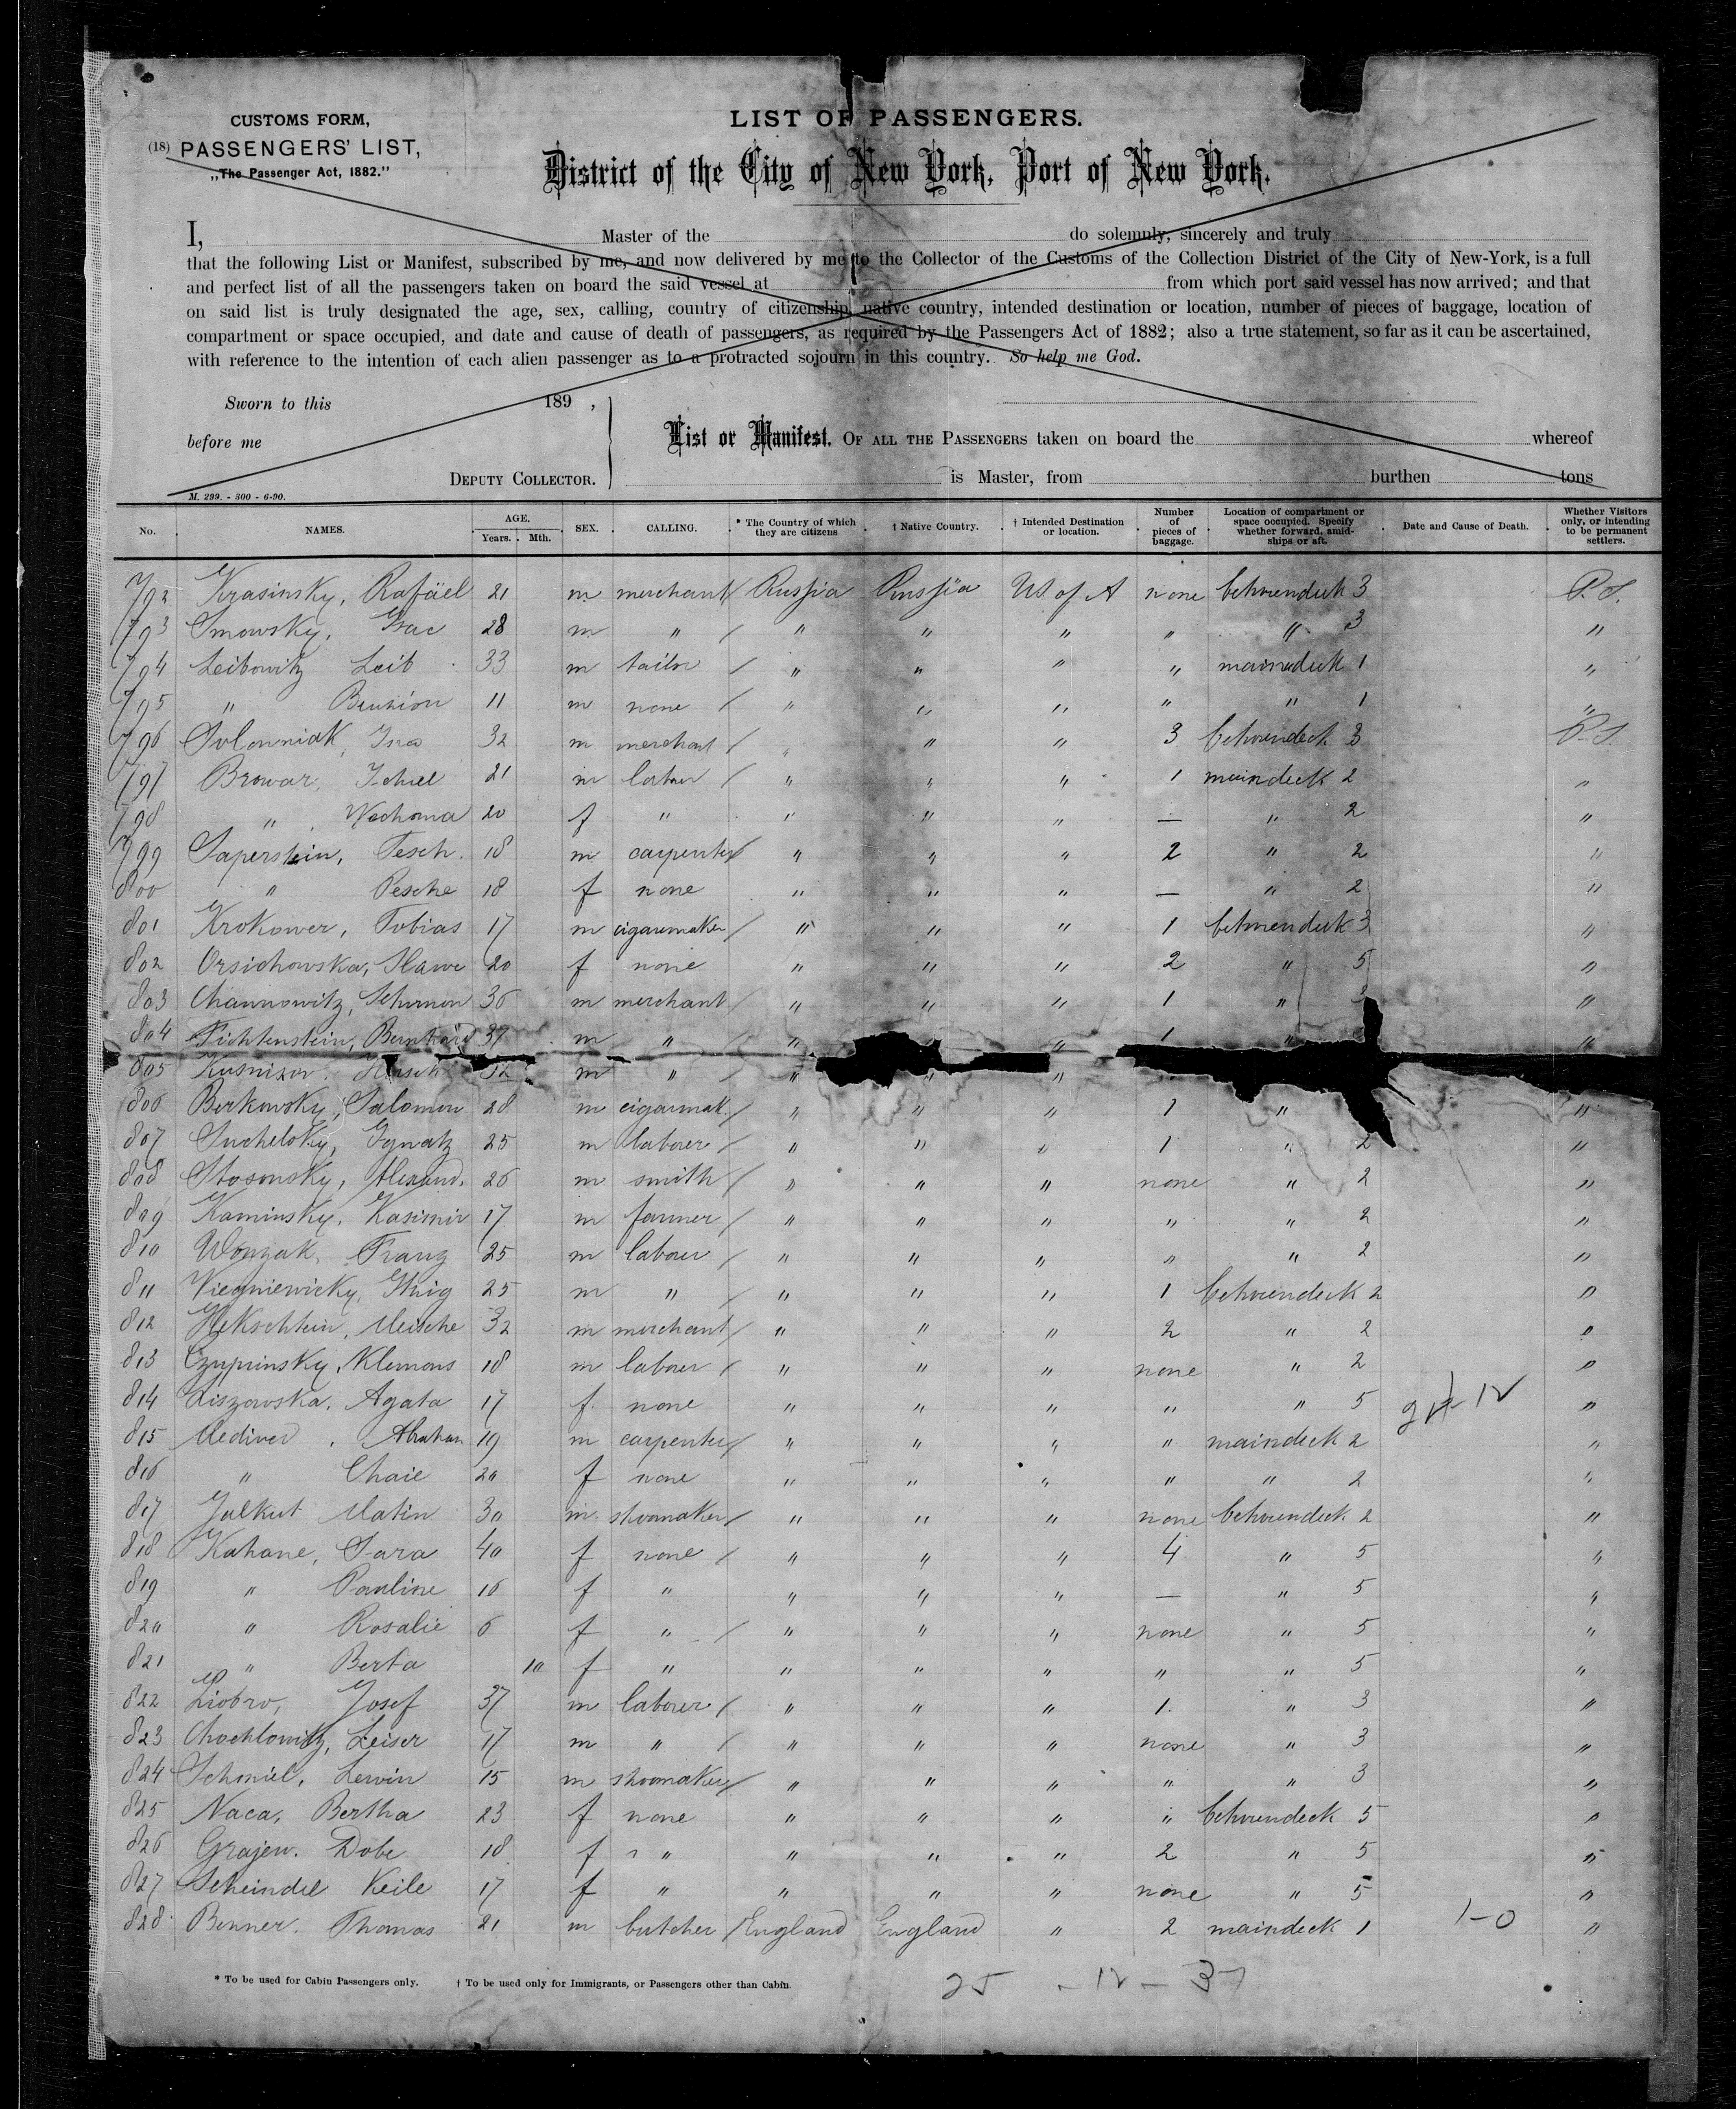 CUSTOMS FORM,
(18) PASSENGERS' LIST,
„The Passenger Act, 1882."
LIST OF PASSENGERS.
District of the City of New York, Port of New York.
I, Master of the do solemnly, sincerely and truly
that the following List or Manifest, subscribed by me, and now delivered by me to the Collector of the Customs of the Collection District of the City of New-York, is a full
and perfect list of all the passengers taken on board the said vessel at from which port said vessel has now arrived; and that
on said list is truly designated the age, sex, calling, country of citizenship, native country, intended destination or location, number of pieces of baggage, location of
compartment or space occupied, and date and cause of death of passengers, as required by the Passengers Act of 1882; also a true statement, so far as it can be ascertained,
with reference to the intention of each alien passenger as to a protracted sojourn in this country. So help me God.
Sworn to this 189 ,
before me
DEPUTY COLLECTOR.
List or Manifest. OF ALL THE PASSENGERS taken on board the whereof
is Master, from burthen tons
M. 299. - 300 - 6-90.
No. NAMES. AGE. Years. Mth. SEX. CALLING. * The Country of which they are citizens † Native Country. † Intended Destination or location. Number of pieces of baggage. Location of compartment or space occupied. Specify whether forward, amidships or aft. Date and Cause of Death. Whether Visitors only, or intending to be permanent settlers.
792 Krasinsky, Rafäel 21 m merchant / Russia Russia US of A none betweendeck 3 P.S.
793 Smowsky, Isac 28 m " / " " " " " 3 "
794 Leibowitz Leib 33 m tailor / " " " " maindeck 1 "
795 " Benzion 11 m none / " " " " " 1 "
796 32 m merchant / " " " 3 betweendeck 3 P.S.
797 Browar, Ichiel 21 m labour / " " " 1 maindeck 2 "
798 " Nechoma 20 f " " " " — " 2 "
799 Saperstein, Tesch. 18 m carpenter / " " " 2 " 2 "
800 " Pesche 18 f none " " " — " 2 "
801 Krokower, Tobias 17 m cigarmaker / " " " 1 betweendeck 3 "
802 Orsichowska, Hawe 20 f none " " " 2 " 5 "
803 Channowitz, 36 m merchant / " " " 1 " 3 "
804 Lichtenstein, Bernhard 37 m " / " " 1 " "
805 Kusnizow. Hirsch 32 m " / " " "
806 Berkowsky, Salomon 28 m cigarmak. / " " " 1 " "
807 Suchelsky, Ignatz 25 m laborer / " " " 1 " 2 "
808 Stosonsky, Alexand. 26 m smith / " " " none " 2 "
809 Kaminsky, Kasimir 17 m farmer / " " " " " 2 "
810 Franz 25 m labour / " " " " " 2 "
811 25 m " / " " " 1 betweendeck 2 "
812 Hekschtein, Meische 32 m merchant / " " " 2 " 2 "
813 Czupinsky, Klemens 18 m labour / " " " none " 2 "
814 Liszowska, Agata 17 f. none " " " " " 5 "
815 Mediwed, Abraham 19 m carpenter / " " " " maindeck 2 "
816 " Chaie 20 f none " " " " " 2 "
817 Jalkut Matin 30 m. shoemaker / " " " none betweendeck 2 "
818 Kahane, Sara 40 f none / " " " 4 " 5 "
819 " Pauline 16 f " " " " — " 5 "
820 " Rosalie 6 f " / " " " none " 5 "
821 " Berta 10 f " " " " " " 5 "
822 Liobro, Josef 37 m laborer / " " " 1. " 3 "
823 Chochlowitz, Leiser 17 m " / " " " none " 3 "
824 Schmiel, Lewin 15 m shoemaker / " " " " " 3 "
825 Naca, Bertha 23 f none " " " " betweendeck 5 "
826 Grajew. Dobe 18 f " " " " 2 " 5 "
827 Scheindel Keile 17 f " " " " none " 5 "
828 Benner. Thomas 21 m butcher / England England " 2 maindeck 1 1-0 "
* To be used for Cabin Passengers only. † To be used only for Immigrants, or Passengers other than Cabin.
25 - 12 - 37